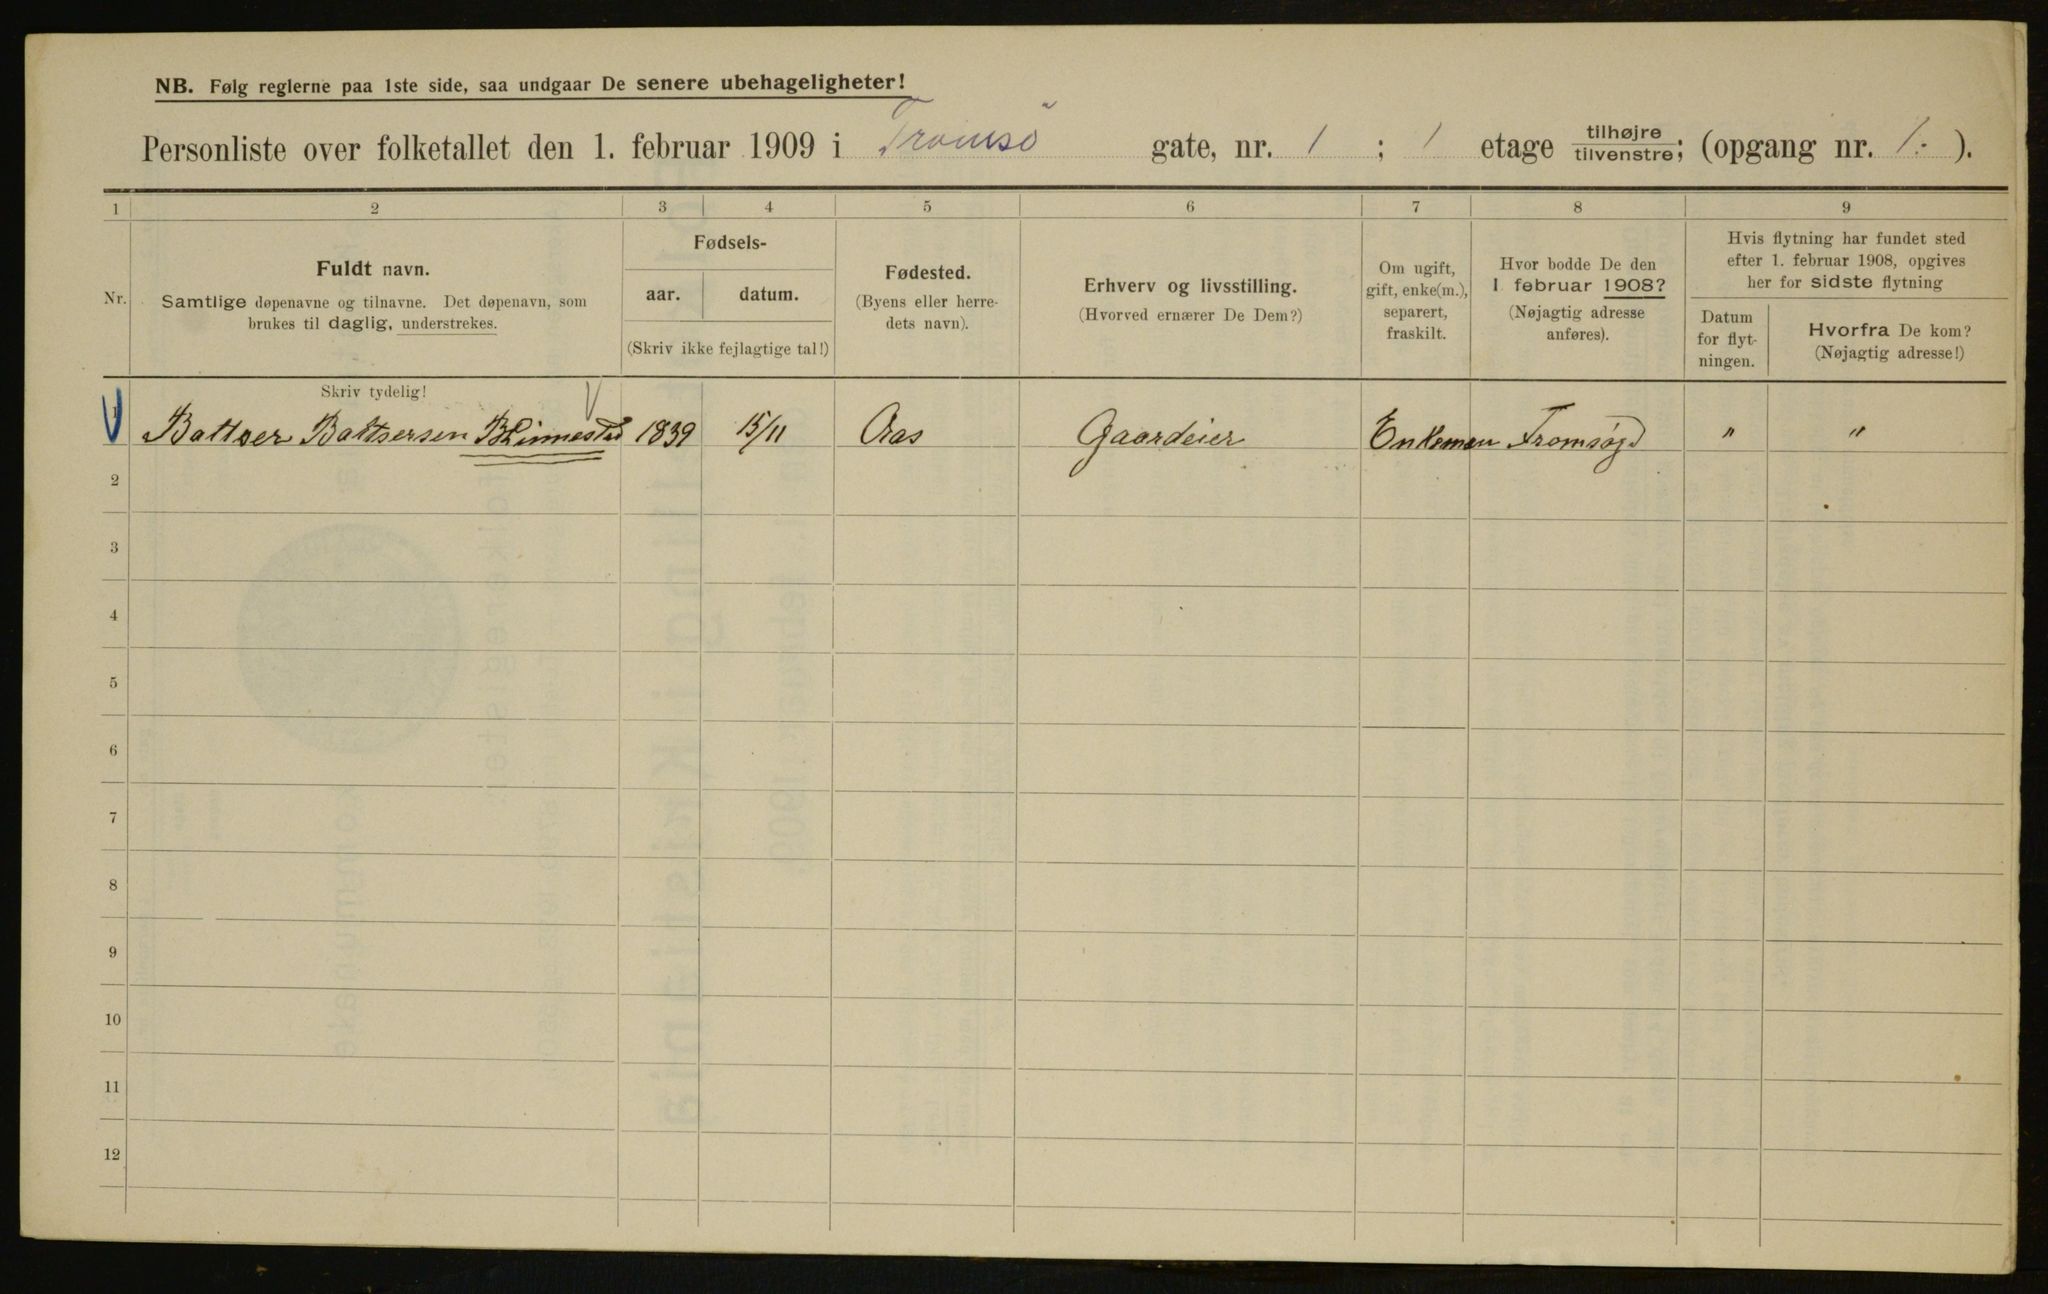 NB. Følg reglerne paa 1ste side, saa undgaar De senere ubehageligheter!
Personliste over folketallet den 1. februar 1909 i Tromsö gate, nr. 1 ; 1 etage tilhøjre tilvenstre; (opgang nr. 1.- ).
1 2 3 4 5 6 7 8 9
Nr.
Fuldt navn.
Samtlige døpenavne og tilnavne. Det døpenavn, som
brukes til daglig, understrekes.
Skriv tydelig!
Fødsels-
aar. datum.
(Skriv ikke fejlagtige tal!)
Fødested.
(Byens eller herre-
dets navn).
Erhverv og livsstilling.
(Hvorved ernærer De Dem?)
Om ugift,
gift, enke(m.),
separert,
fraskilt.
Hvor bodde De den
1 februar 1908?
(Nøjagtig adresse
anføres).
Hvis flytning har fundet sted
efter 1. februar 1908, opgives
her for sidste flytning
Datum
for flyt-
ningen.
Hvorfra De kom?
(Nøjagtig adresse!)
1 Baltser Baltsersen 1839 15/11 Aas Gaardeier Enkeman Tromsøgd " "
2
3
4
5
6
7
8
9
10
11
12